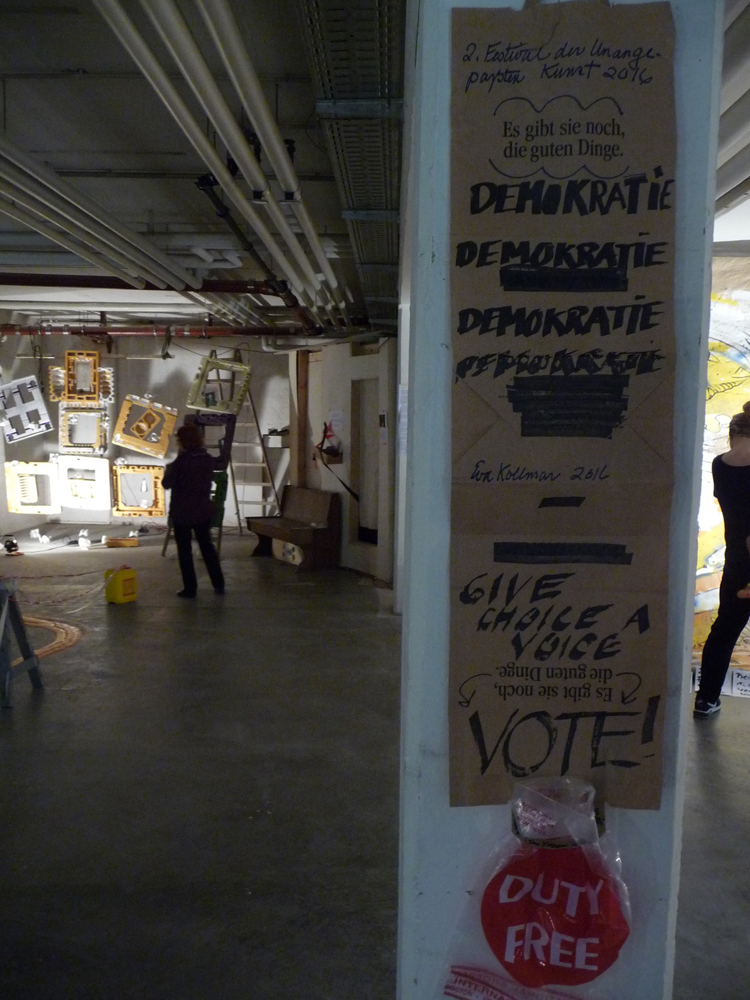 2. Festival der Unange-
paßten Kunst 2016
Es gibt sie noch,
die guten Dinge.
DEMOKRATIE
DEMOKRATIE
DEMOKRATIE
DEMOKRATIE
Eva Kollmar 2016
GIVE
CHOICE A
VOICE
Es gibt sie noch,
die guten Dinge.
VOTE!
DUTY
FREE